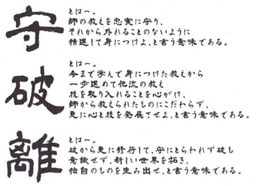 守
とは－。
師の教えを忠実に守り、
それから外れることのないように
精進して身につけよ、と言う意味である。
破
とは－。
今まで学んで身につけた教えから
一歩進めて他流の教え
技を取り入れることを心がけ、
師から教えられたものにこだわらず、
更に心と技を発展させよ、と言う意味である。
離
とは－。
破から更に修行して、守にとらわれず破も
意識せず、新しい世界を拓き、
独自のものを生み出せ、と言う意味である。